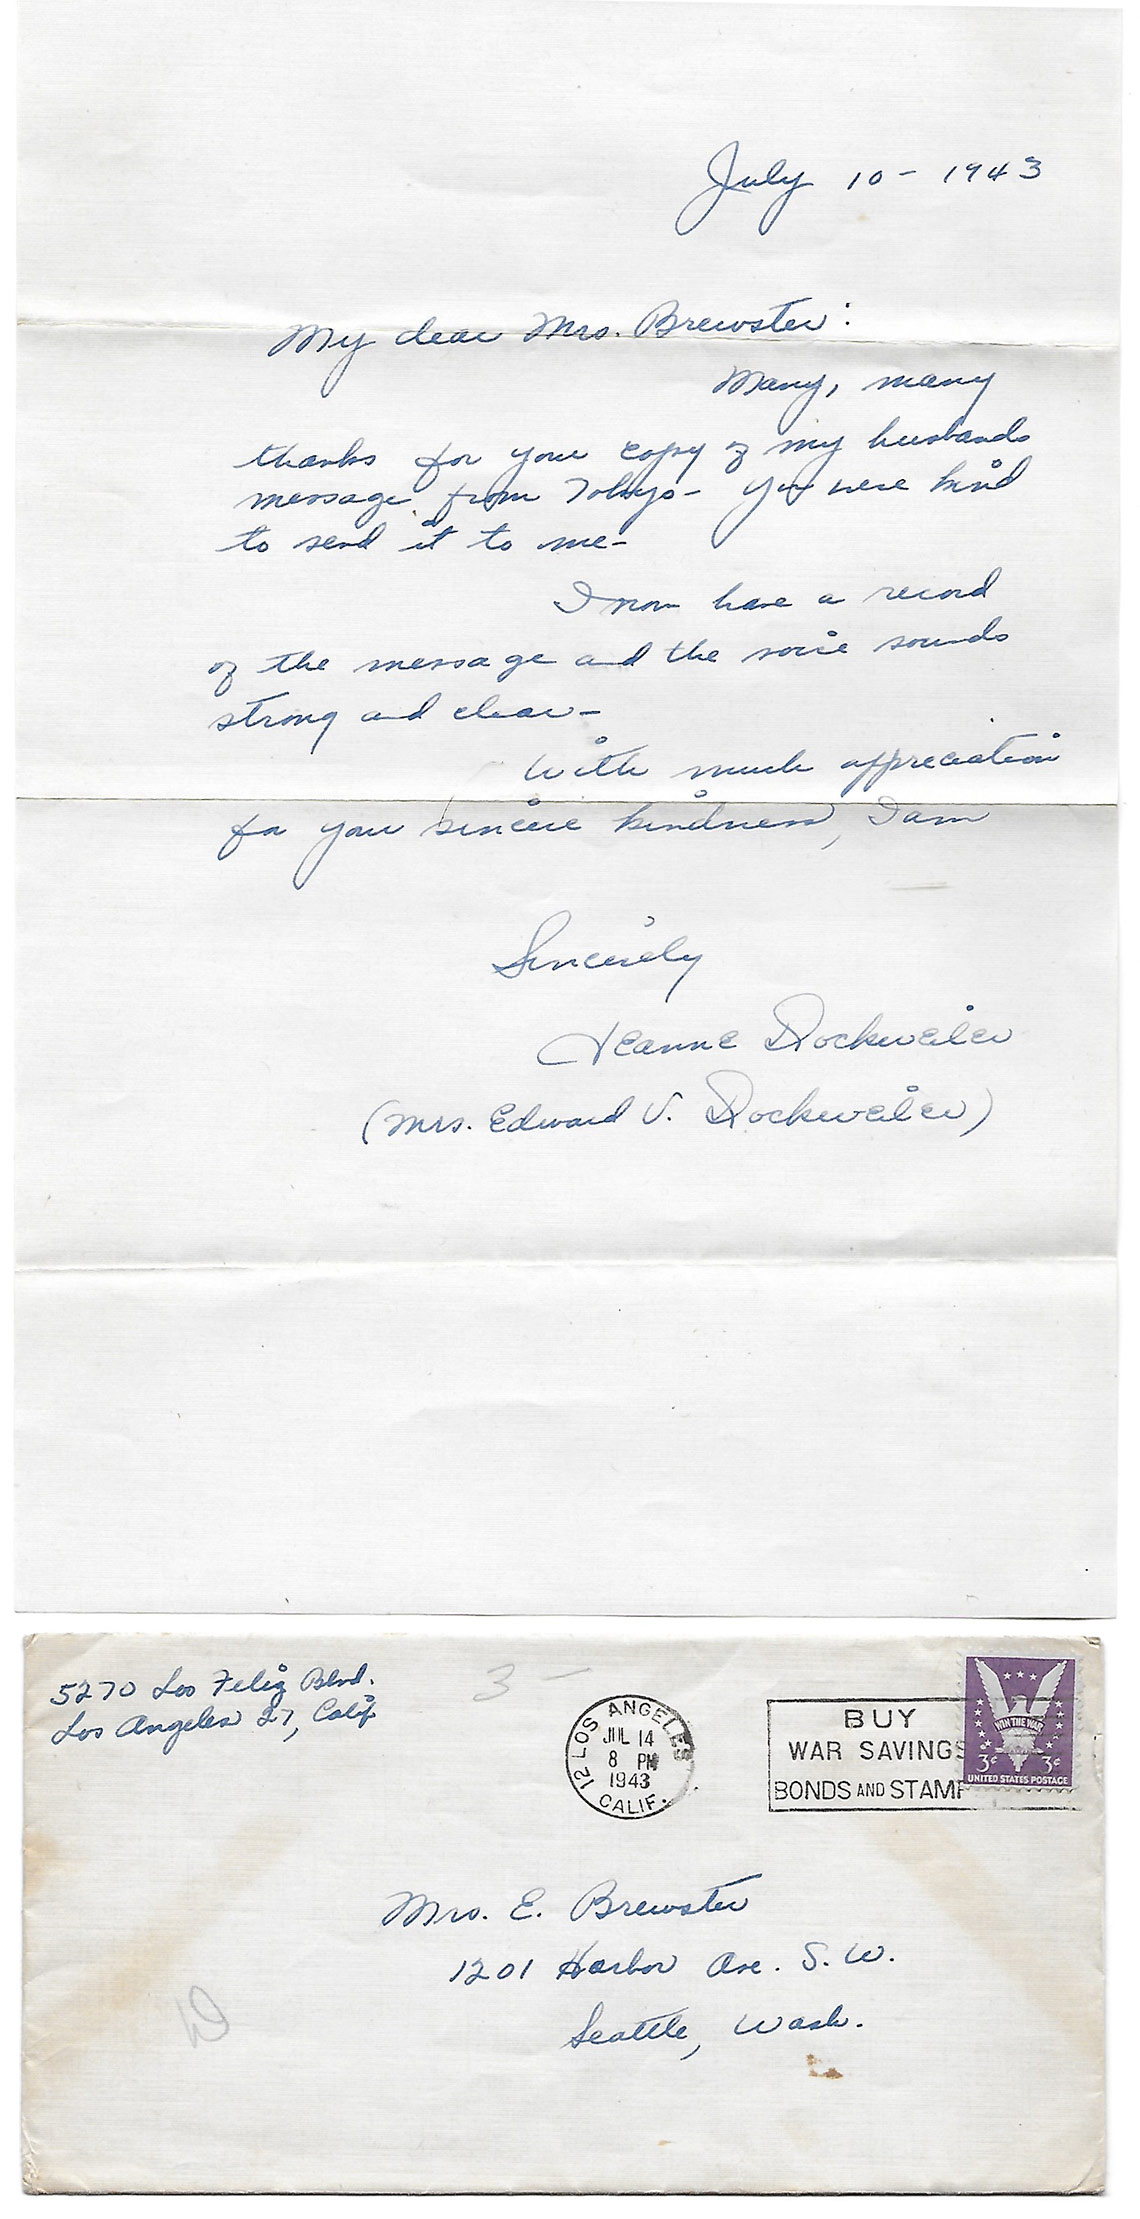 July 10 - 1943
My dear Mrs. Brewster:
Many, many
thanks for your copy of my husbands
message from Tokyo - You were kind
to send it to me -
I now have a record
of the message and the voice sounds
strong and clear -
With much appreciation
for your sincere kindness, I am
Sincerely
Jeanne Dockweiler
(Mrs. Edward V. Dockweiler)
5270 Los Feliz Blvd.
Los Angeles 27, Calif
3 -
12 LOS ANGELES
JUL 14
8 PM
1943
CALIF.
BUY
WAR SAVINGS
BONDS AND STAMP
WIN THE WAR
3¢ 3¢
UNITED STATES POSTAGE
Mrs. E. Brewster
1201 Harbor Ave. S.W.
Seattle, Wash.